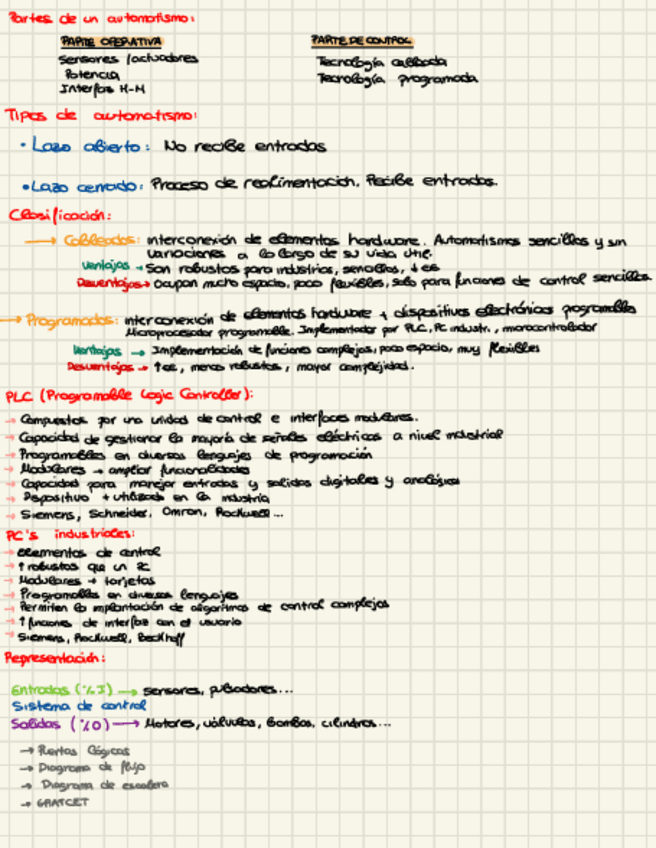 Partes de un automatismo:
PARTE OPERATIVA
PARTE DE CONTROL
Sensores / actuadores
Tecnología cableada
Potencia
Tecnología programada
Interfaz H-M
Tipos de automatismo:
• Lazo abierto: No recibe entradas
• Lazo cerrado: Proceso de realimentación. Recibe entradas.
Clasificación:
→ Cableados: interconexión de elementos hardware. Automatismos sencillos y sin
variaciones a lo largo de su vida útil.
Ventajas → Son robustos para industrias, sencillos, ↓€€
Desventajas → Ocupan mucho espacio, poco flexibles, solo para funciones de control sencillas
→ Programados: interconexión de elementos hardware + dispositivos electrónicos programables
Microprocesador programable. Implementador por PLC, PC industr., microcontrolador
Ventajas → Implementación de funciones complejas, poco espacio, muy flexibles
Desventajas → ↑€€, menos robustos, mayor complejidad.
PLC (Programable Logic Controller):
→ Compuestos por una unidad de control e interfaces modulares.
→ Capacidad de gestionar la mayoría de señales eléctricas a nivel industrial
→ Programables en diversos lenguajes de programación
→ Modulares → ampliar funcionalidades
→ Capacidad para manejar entradas y salidas digitales y analógicas
→ Dispositivo + utilizado en la industria
→ Siemens, Schneider, Omron, Rockwell...
PC's industriales:
→ elementos de control
→ ↑ robustos que un PC
→ Modulares → tarjetas
→ Programables en diversos lenguajes
→ Permiten la implantación de algoritmos de control complejos
→ ↑ funciones de interfaz con el usuario
→ Siemens, Rockwell, Beckhoff
Representación:
Entradas (%I) → sensores, pulsadores...
Sistema de control
Salidas (%O) → Motores, válvulas, bombas, cilindros...
→ Puertas lógicas
→ Diagrama de flujo
→ Diagrama de escalera
→ GRAFCET